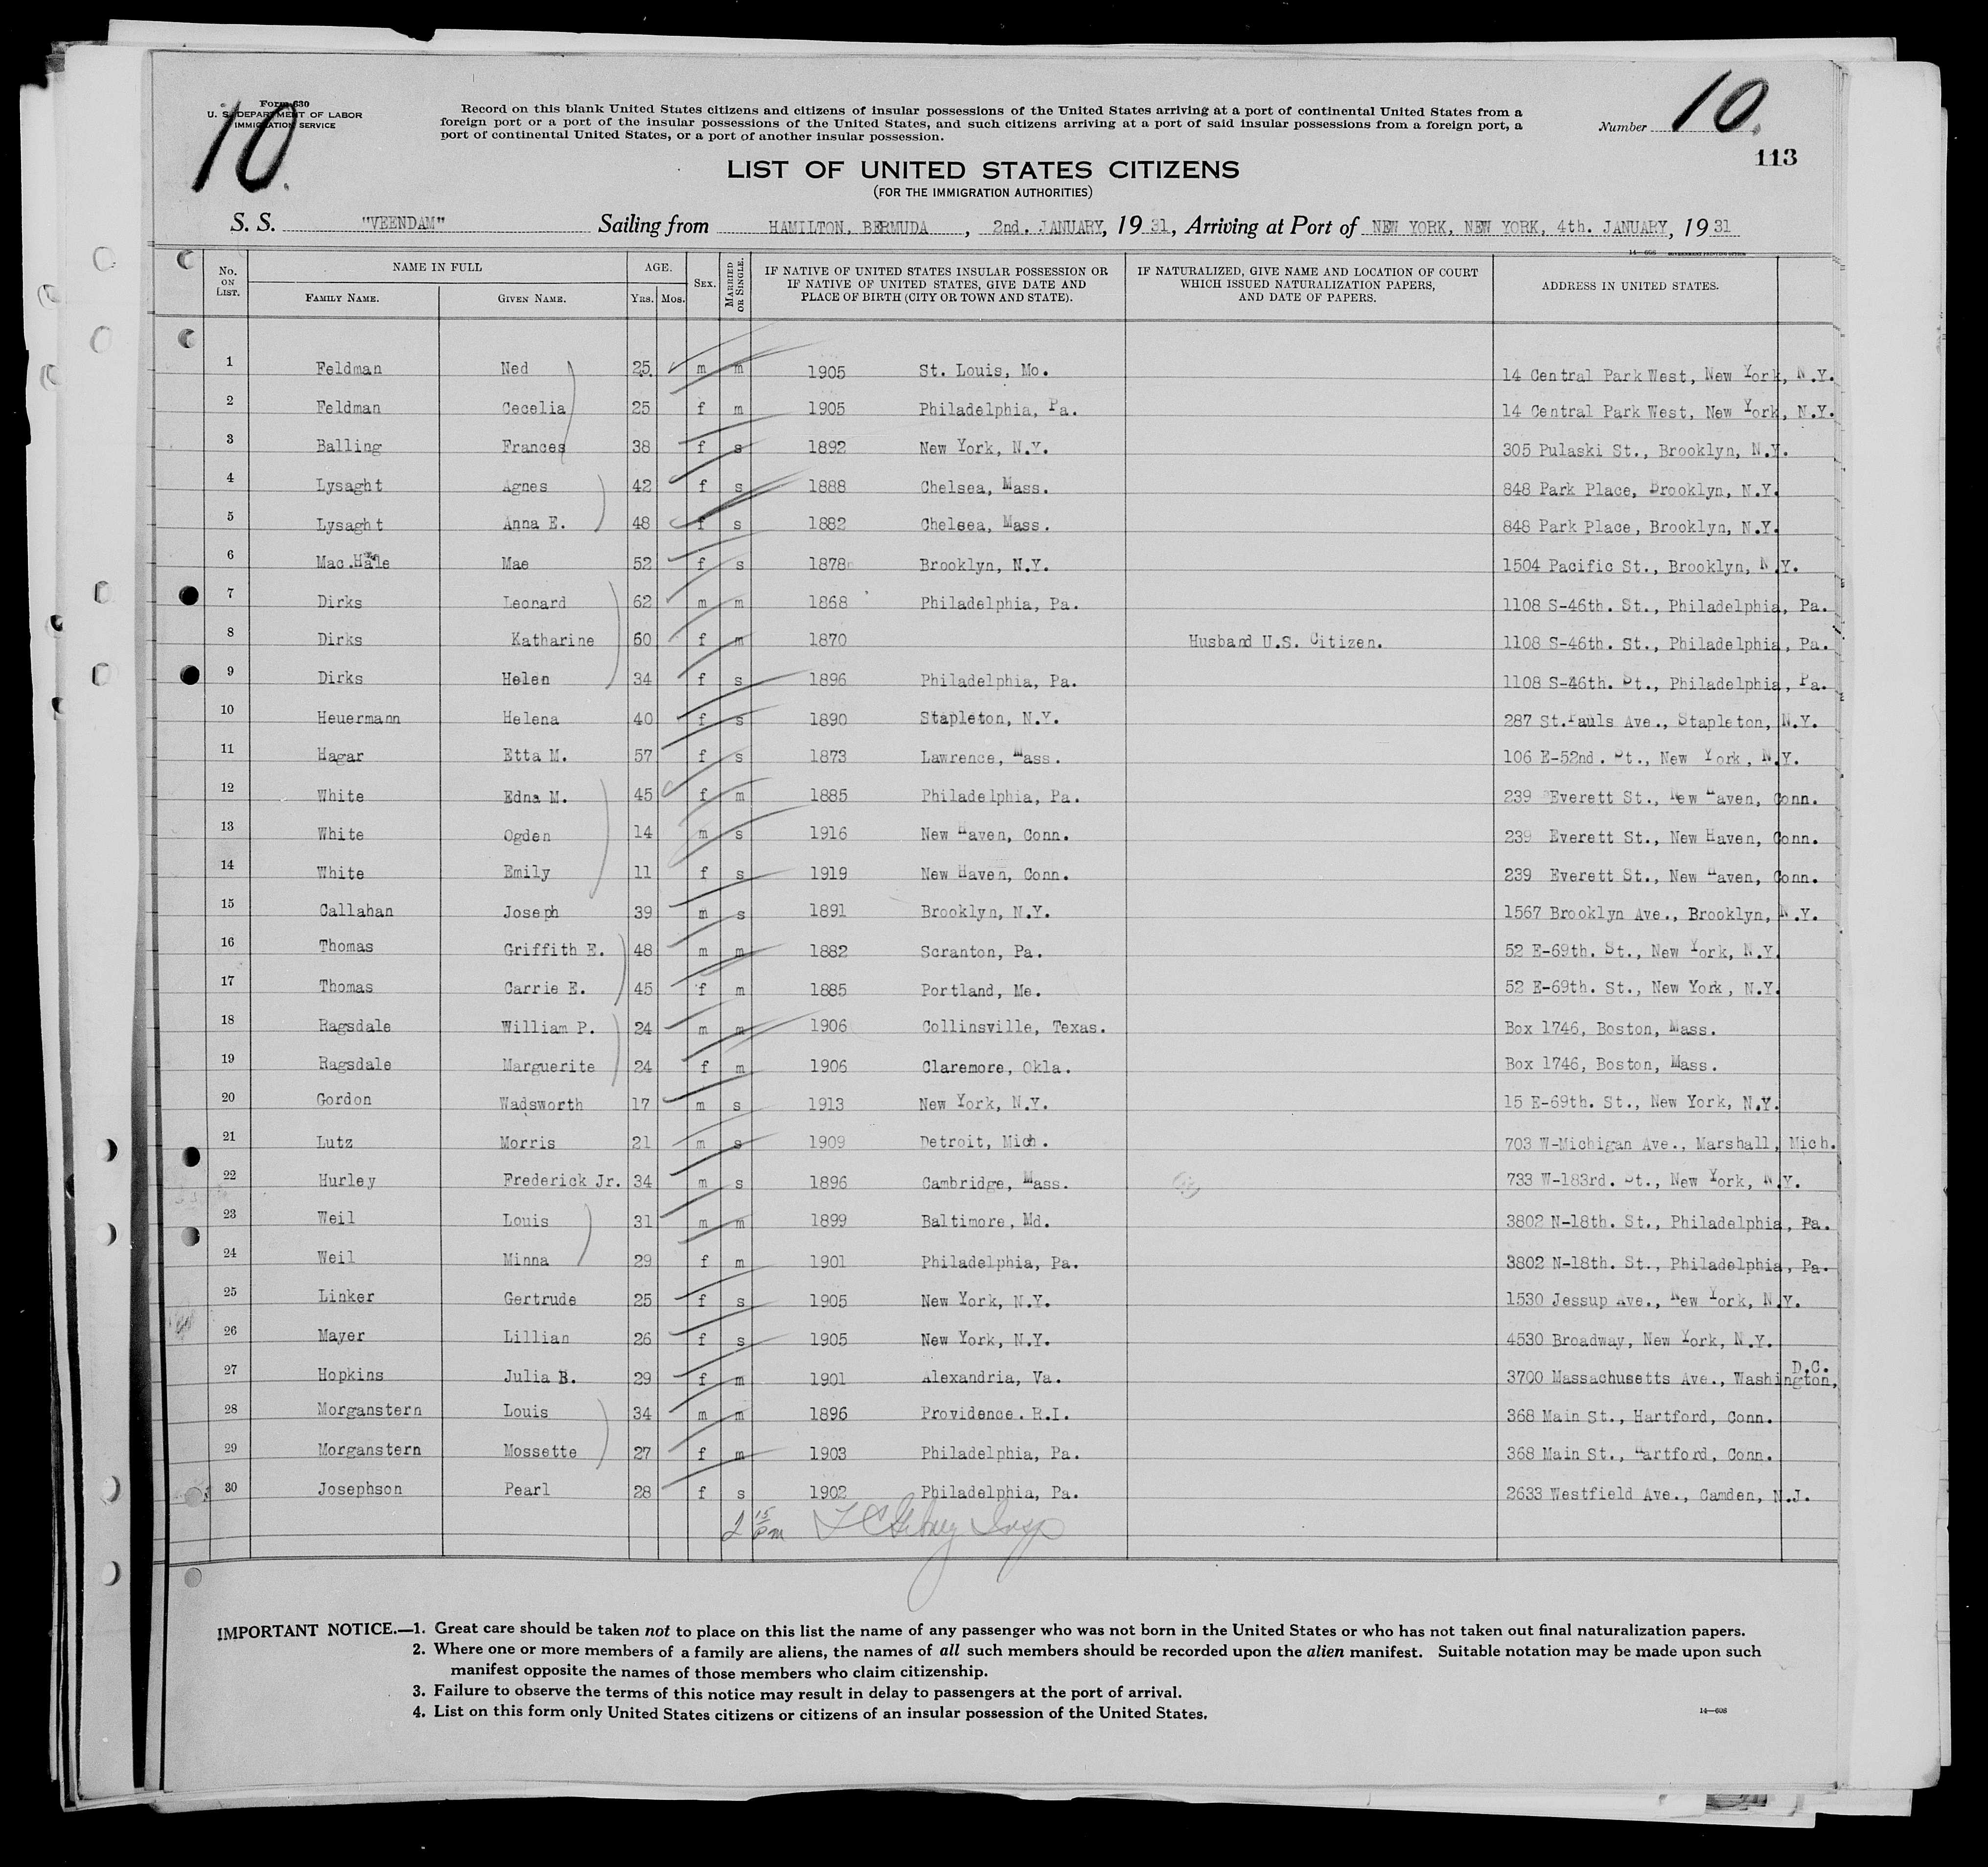 Form 630
U. S. DEPARTMENT OF LABOR
IMMIGRATION SERVICE
10.
Record on this blank United States citizens and citizens of insular possessions of the United States arriving at a port of continental United States from a
foreign port or a port of the insular possessions of the United States, and such citizens arriving at a port of said insular possessions from a foreign port, a
port of continental United States, or a port of another insular possession.
Number 10.
113
LIST OF UNITED STATES CITIZENS
(FOR THE IMMIGRATION AUTHORITIES)
S. S. "VEENDAM" Sailing from HAMILTON, BERMUDA, 2nd. JANUARY, 1931, Arriving at Port of NEW YORK, NEW YORK, 4th. JANUARY, 1931
14—608 GOVERNMENT PRINTING OFFICE
No. ON LIST. NAME IN FULL FAMILY NAME. GIVEN NAME. AGE. YRS. MOS. SEX. MARRIED OR SINGLE. IF NATIVE OF UNITED STATES INSULAR POSSESSION OR IF NATIVE OF UNITED STATES, GIVE DATE AND PLACE OF BIRTH (CITY OR TOWN AND STATE). IF NATURALIZED, GIVE NAME AND LOCATION OF COURT WHICH ISSUED NATURALIZATION PAPERS, AND DATE OF PAPERS. ADDRESS IN UNITED STATES.
1 Feldman Ned 25 m m 1905 St. Louis, Mo. 14 Central Park West, New York, N.Y.
2 Feldman Cecelia 25 f m 1905 Philadelphia, Pa. 14 Central Park West, New York, N.Y.
3 Balling Frances 38 f s 1892 New York, N.Y. 305 Pulaski St., Brooklyn, N.Y.
4 Lysaght Agnes 42 f s 1888 Chelsea, Mass. 848 Park Place, Brooklyn, N.Y.
5 Lysaght Anna E. 48 f s 1882 Chelsea, Mass. 848 Park Place, Brooklyn, N.Y.
6 Mac.Hale Mae 52 f s 1878 Brooklyn, N.Y. 1504 Pacific St., Brooklyn, N.Y.
7 Dirks Leonard 62 m m 1868 Philadelphia, Pa. 1108 S-46th. St., Philadelphia, Pa.
8 Dirks Katharine 60 f m 1870 Husband U.S. Citizen. 1108 S-46th. St., Philadelphia, Pa.
9 Dirks Helen 34 f s 1896 Philadelphia, Pa. 1108 S-46th. St., Philadelphia, Pa.
10 Heuermann Helena 40 f s 1890 Stapleton, N.Y. 287 St.Pauls Ave., Stapleton, N.Y.
11 Hagar Etta M. 57 f s 1873 Lawrence, Mass. 106 E-52nd. St., New York, N.Y.
12 White Edna M. 45 f m 1885 Philadelphia, Pa. 239 Everett St., New Haven, Conn.
13 White Ogden 14 m s 1916 New Haven, Conn. 239 Everett St., New Haven, Conn.
14 White Emily 11 f s 1919 New Haven, Conn. 239 Everett St., New Haven, Conn.
15 Callahan Joseph 39 m s 1891 Brooklyn, N.Y. 1567 Brooklyn Ave., Brooklyn, N.Y.
16 Thomas Griffith E. 48 m m 1882 Scranton, Pa. 52 E-69th. St., New York, N.Y.
17 Thomas Carrie E. 45 f m 1885 Portland, Me. 52 E-69th. St., New York, N.Y.
18 Ragsdale William P. 24 m m 1906 Collinsville, Texas. Box 1746, Boston, Mass.
19 Ragsdale Marguerite 24 f m 1906 Claremore, Okla. Box 1746, Boston, Mass.
20 Gordon Wadsworth 17 m s 1913 New York, N.Y. 15 E-69th. St., New York, N.Y.
21 Lutz Morris 21 m s 1909 Detroit, Mich. 703 W-Michigan Ave., Marshall, Mich.
22 Hurley Frederick Jr. 34 m s 1896 Cambridge, Mass. 733 W-183rd. St., New York, N.Y.
23 Weil Louis 31 m m 1899 Baltimore, Md. 3802 N-18th. St., Philadelphia, Pa.
24 Weil Minna 29 f m 1901 Philadelphia, Pa. 3802 N-18th. St., Philadelphia, Pa.
25 Linker Gertrude 25 f s 1905 New York, N.Y. 1530 Jessup Ave., New York, N.Y.
26 Mayer Lillian 26 f s 1905 New York, N.Y. 4530 Broadway, New York, N.Y.
27 Hopkins Julia B. 29 f m 1901 Alexandria, Va. 3700 Massachusetts Ave., Washington, D.C.
28 Morganstern Louis 34 m m 1896 Providence. R.I. 368 Main St., Hartford, Conn.
29 Morganstern Mossette 27 f m 1903 Philadelphia, Pa. 368 Main St., Hartford, Conn.
30 Josephson Pearl 28 f s 1902 Philadelphia, Pa. 2633 Westfield Ave., Camden, N.J.
2 15 pm Insp
IMPORTANT NOTICE.—1. Great care should be taken not to place on this list the name of any passenger who was not born in the United States or who has not taken out final naturalization papers.
2. Where one or more members of a family are aliens, the names of all such members should be recorded upon the alien manifest. Suitable notation may be made upon such
manifest opposite the names of those members who claim citizenship.
3. Failure to observe the terms of this notice may result in delay to passengers at the port of arrival.
4. List on this form only United States citizens or citizens of an insular possession of the United States.
14—608